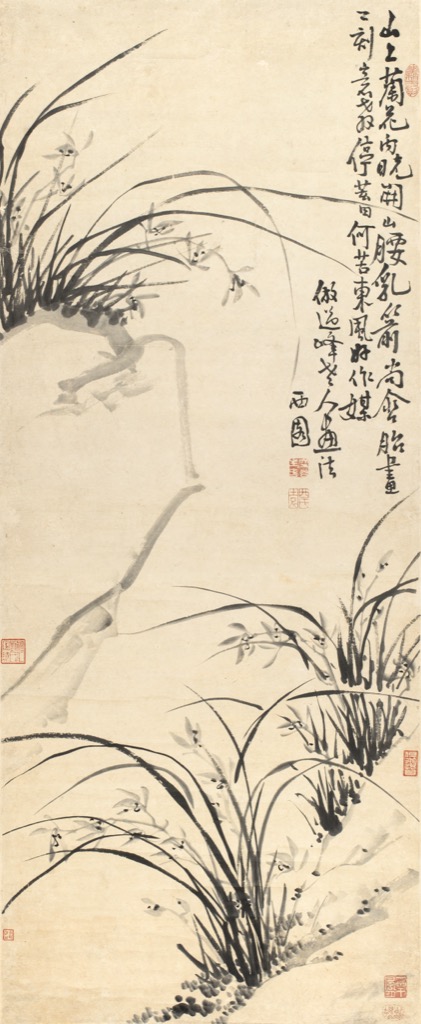 山上蘭花向曉開山腰乳箭尚含胎畫
工刻意教停蓄何苦東風好作媒
倣過峰老人畫法
西園